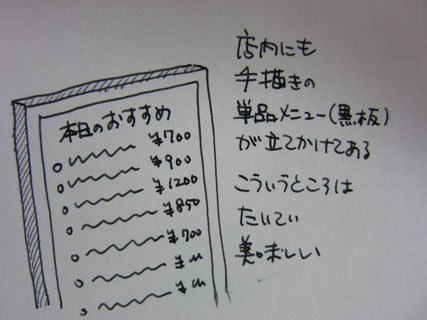 本日のおすすめ
¥700
¥900
¥1200
¥850
¥700
¥
¥
店内にも
手描きの
単品メニュー(黒板)
が立てかけてある
こういうところは
たいてい
美味しい